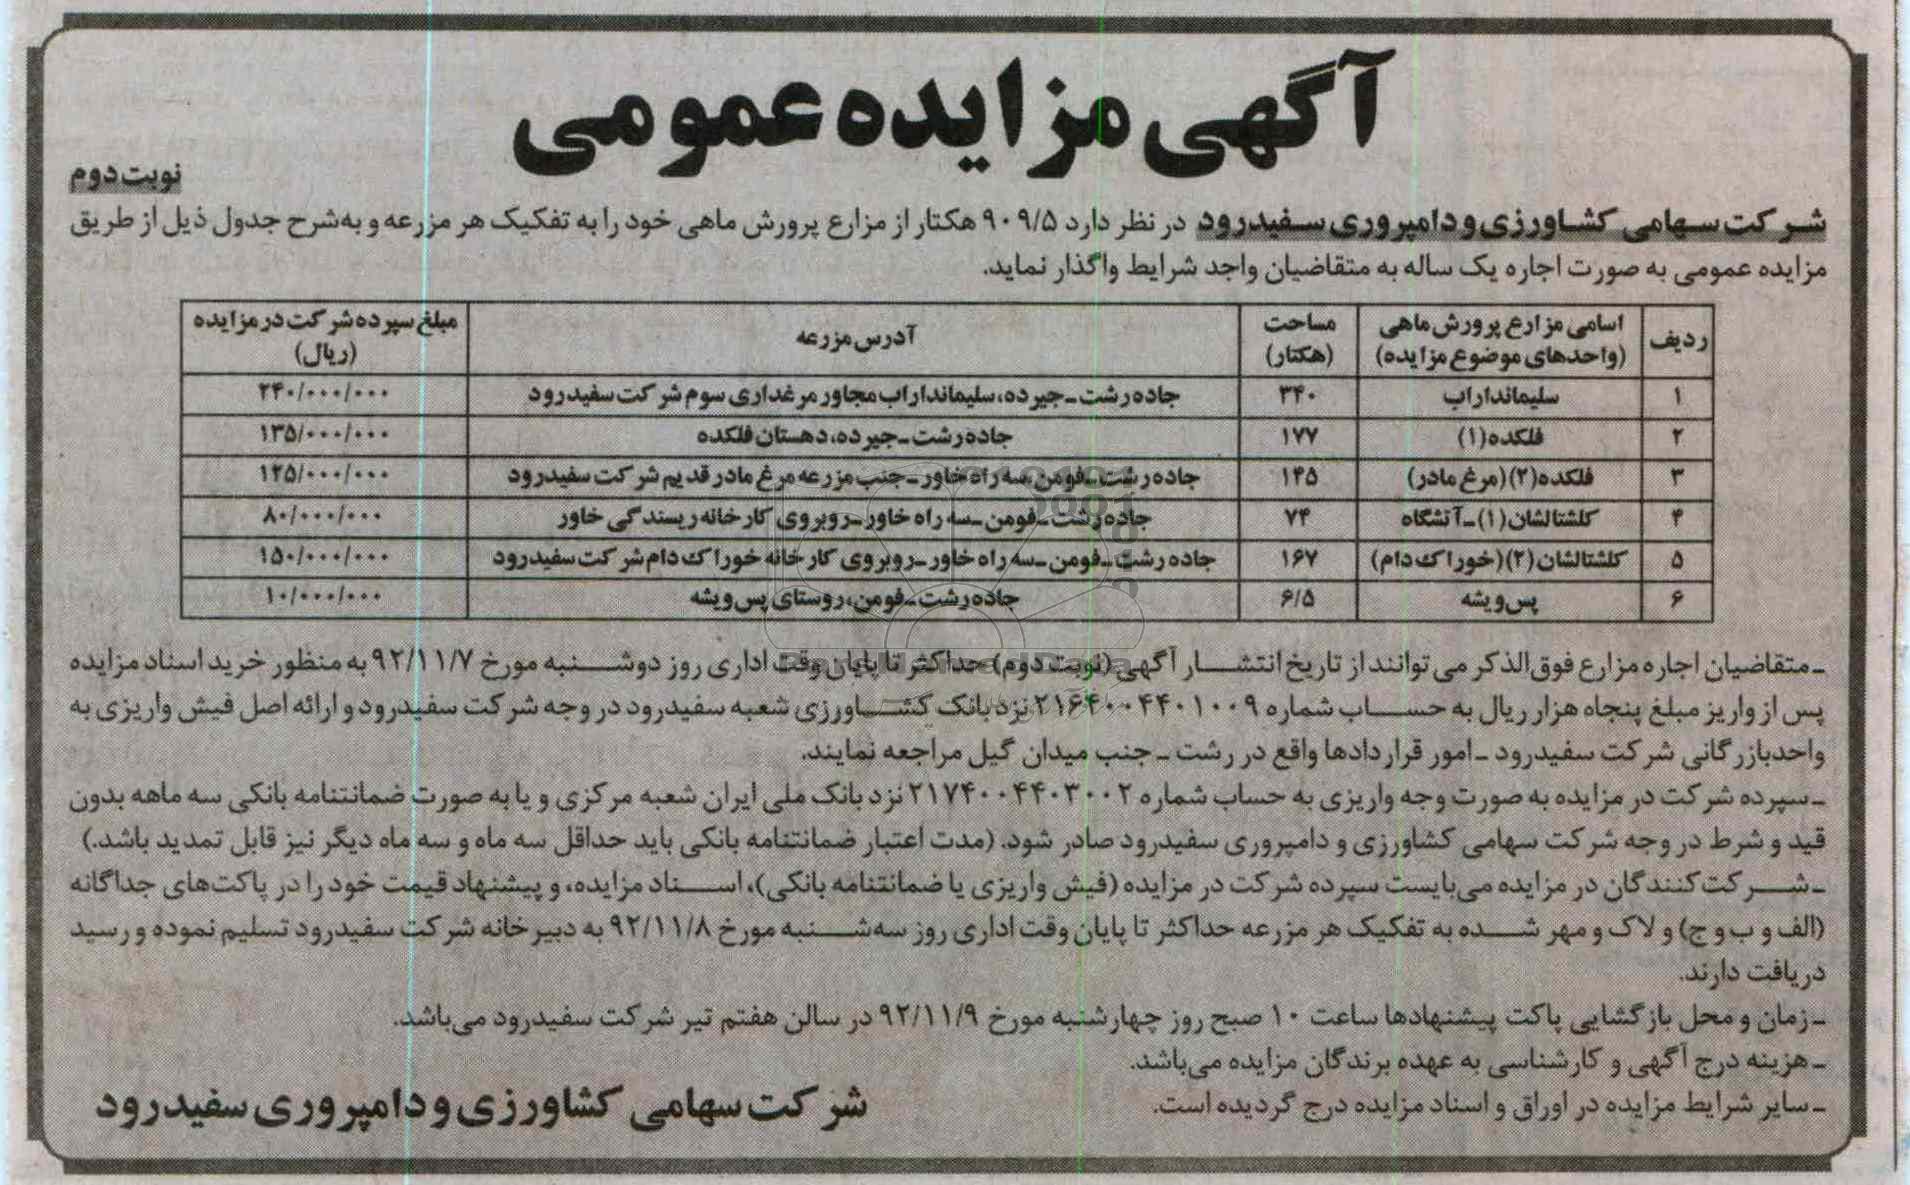 آگهی مزایده عمومی
نوبت دوم
شرکت سهامی کشاورزی و دامپروری سفیدرود در نظر دارد ۹۰۹/۵ هکتار از مزارع پرورش ماهی خود را به تفکیک هر مزرعه و به‌شرح جدول ذیل از طریق
مزایده عمومی به صورت اجاره یک ساله به متقاضیان واجد شرایط واگذار نماید.
ردیف | اسامی مزارع پرورش ماهی (واحدهای موضوع مزایده) | مساحت (هکتار) | آدرس مزرعه | مبلغ سپرده شرکت در مزایده (ریال)
۱ | سلیمانداراب | ۳۴۰ | جاده رشت ـ جیرده، سلیمانداراب مجاور مرغداری سوم شرکت سفیدرود | ۲۴۰/۰۰۰/۰۰۰
۲ | فلکده (۱) | ۱۷۷ | جاده رشت ـ جیرده، دهستان فلکده | ۱۳۵/۰۰۰/۰۰۰
۳ | فلکده (۲) (مرغ مادر) | ۱۴۵ | جاده رشت ـ فومن، سه راه خاور ـ جنب مزرعه مرغ مادر قدیم شرکت سفیدرود | ۱۲۵/۰۰۰/۰۰۰
۴ | کلشتالشان (۱) ـ آتشگاه | ۷۴ | جاده رشت ـ فومن ـ سه راه خاور ـ روبروی کارخانه ریسندگی خاور | ۸۰/۰۰۰/۰۰۰
۵ | کلشتالشان (۲) (خوراک دام) | ۱۶۷ | جاده رشت ـ فومن ـ سه راه خاور ـ روبروی کارخانه خوراک دام شرکت سفیدرود | ۱۵۰/۰۰۰/۰۰۰
۶ | پس ویشه | ۶/۵ | جاده رشت ـ فومن، روستای پس ویشه | ۱۰/۰۰۰/۰۰۰
ـ متقاضیان اجاره مزارع فوق‌الذکر می توانند از تاریخ انتشار آگهی (نوبت دوم) حداکثر تا پایان وقت اداری روز دوشنبه مورخ ۹۲/۱۱/۷ به منظور خرید اسناد مزایده
پس از واریز مبلغ پنجاه هزار ریال به حساب شماره ۲۱۶۴۰۰۴۴۰۱۰۰۹ نزد بانک کشاورزی شعبه سفیدرود در وجه شرکت سفیدرود و ارائه اصل فیش واریزی به
واحد بازرگانی شرکت سفیدرود ـ امور قراردادها واقع در رشت ـ جنب میدان گیل مراجعه نمایند.
ـ سپرده شرکت در مزایده به صورت وجه واریزی به حساب شماره ۲۱۷۴۰۰۴۴۰۳۰۰۲ نزد بانک ملی ایران شعبه مرکزی و یا به صورت ضمانتنامه بانکی سه ماهه بدون
قید و شرط در وجه شرکت سهامی کشاورزی و دامپروری سفیدرود صادر شود. (مدت اعتبار ضمانتنامه بانکی باید حداقل سه ماه و سه ماه دیگر نیز قابل تمدید باشد.)
ـ شرکت‌کنندگان در مزایده می‌بایست سپرده شرکت در مزایده (فیش واریزی یا ضمانتنامه بانکی)، اسناد مزایده، و پیشنهاد قیمت خود را در پاکت‌های جداگانه
(الف و ب و ج) و لاک و مهر شده به تفکیک هر مزرعه حداکثر تا پایان وقت اداری روز سه‌شنبه مورخ ۹۲/۱۱/۸ به دبیرخانه شرکت سفیدرود تسلیم نموده و رسید
دریافت دارند.
ـ زمان و محل بازگشایی پاکت پیشنهادها ساعت ۱۰ صبح روز چهارشنبه مورخ ۹۲/۱۱/۹ در سالن هفتم تیر شرکت سفیدرود می‌باشد.
ـ هزینه درج آگهی و کارشناسی به عهده برندگان مزایده می‌باشد.
ـ سایر شرایط مزایده در اوراق و اسناد مزایده درج گردیده است.
شرکت سهامی کشاورزی و دامپروری سفیدرود